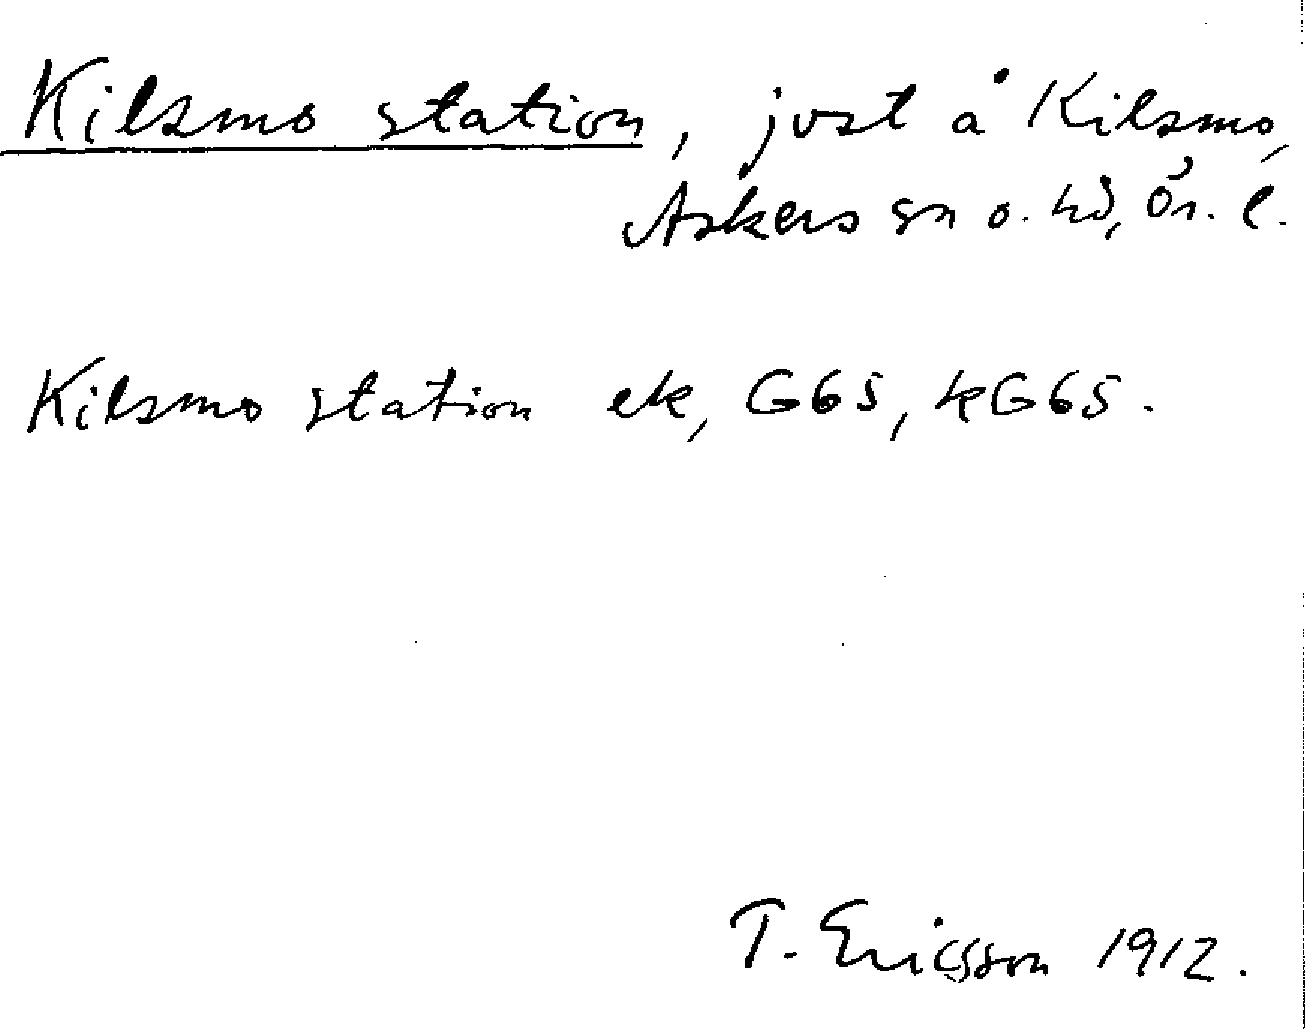 Kilsmo station, just å Kilsmo,
Askers sn o. hd, Ör. l.
Kilsmo station ek, G65, kG65.
T. Ericsson 1912.